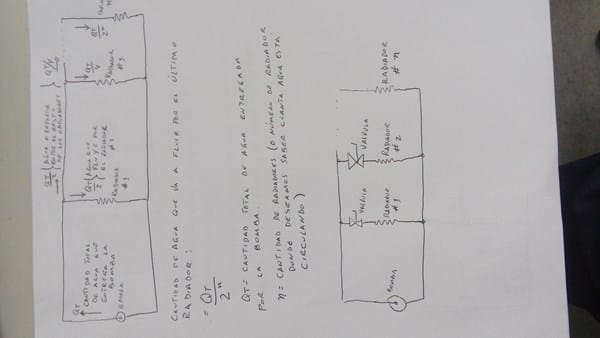 QT
CANTIDAD TOTAL
DE AGUA QUE
ENTREGA LA
BOMBA
BOMBA
QT
2
AGUA A REPARTIR
QT
2
AGUA QUE
FLUYE POR
EL RADIADOR
# 1
RADIADOR
# 1
QT/4
QT
4
RADIADOR
QT
2ⁿ
n
CANTIDAD DE AGUA QUE VA A FLUIR POR EL ÚLTIMO
RADIADOR:
= QT
2ⁿ
QT = CANTIDAD TOTAL DE AGUA ENTREGADA
POR LA BOMBA.
n = CANTIDAD DE RADIADORES (O NUMERO DE RADIADOR
DONDE DESEAMOS SABER CUANTA AGUA ESTA
CIRCULANDO)
BOMBA
VALVULA
RADIADOR
# 1
VALVULA
RADIADOR
# 2
RADIADOR
# n